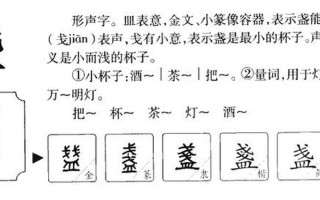 形声字。皿表意，金文、小篆像容器，表示盏能
(戋jiān)表声，戋有小意，表示盏是最小的杯子。声
义是小而浅的杯子。
①小杯子：酒～｜茶～｜把～。②量词，用于灯
万～明灯。
把～ 杯～ 茶～ 灯～ 酒～
盏 盏 盏 盏
金 篆 隶 楷